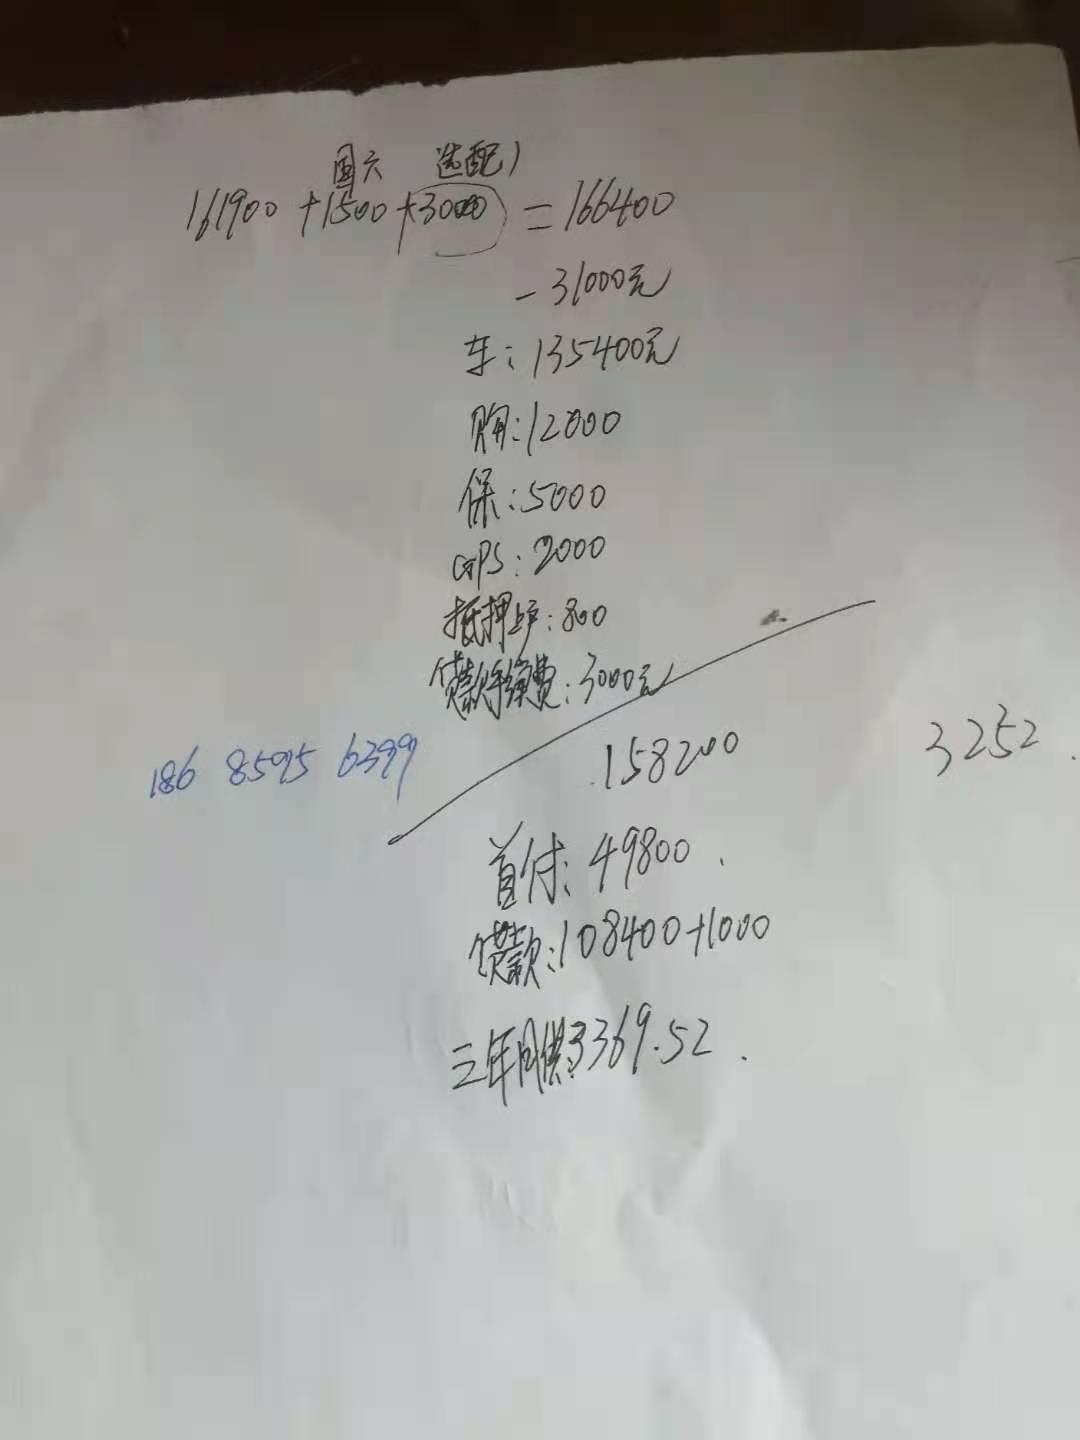 国六 选配1
161900+1500+3000=166400
-31000元
车:135400元
购:12000
保:5000
GPS:2000
抵押上户:800
贷款手续费:3000元
186 8595 6399
158200
3252.
首付:49800.
贷款:108400+1000
三年月供:3369.52.